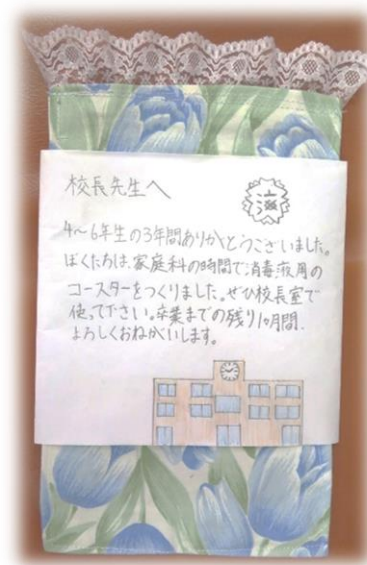 校長先生へ
4〜6年生の3年間ありがとうございました。
ぼくたちは、家庭科の時間で消毒液用の
コースターをつくりました。ぜひ校長室で
使って下さい。卒業までの残り1ヶ月間、
よろしくおねがいします。